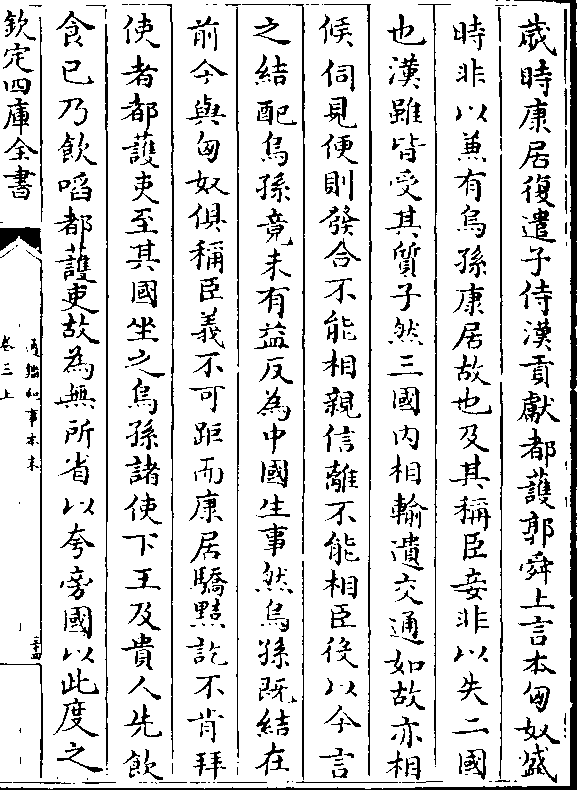 歲時康居復遣子侍漢貢獻都護郭舜上言本匈奴盛
時非以兼有烏孫康居故也及其稱臣妾非以失二國
也漢雖皆受其質子然三國内相輸遺交通如故亦相
候伺見便則發合不能相親信離不能相臣役以今言
之結配烏孫竟未有益反為中國生事然烏孫既結在
前今與匈奴俱稱臣義不可距而康居驕黠訖不肯拜
使者都護吏至其國坐之烏孫諸使下王及貴人先飲
食已乃飲啗都護吏故為無所省以夸旁國以此度之
欽定四庫全書
通鑑紀事本末
卷三上
三十四